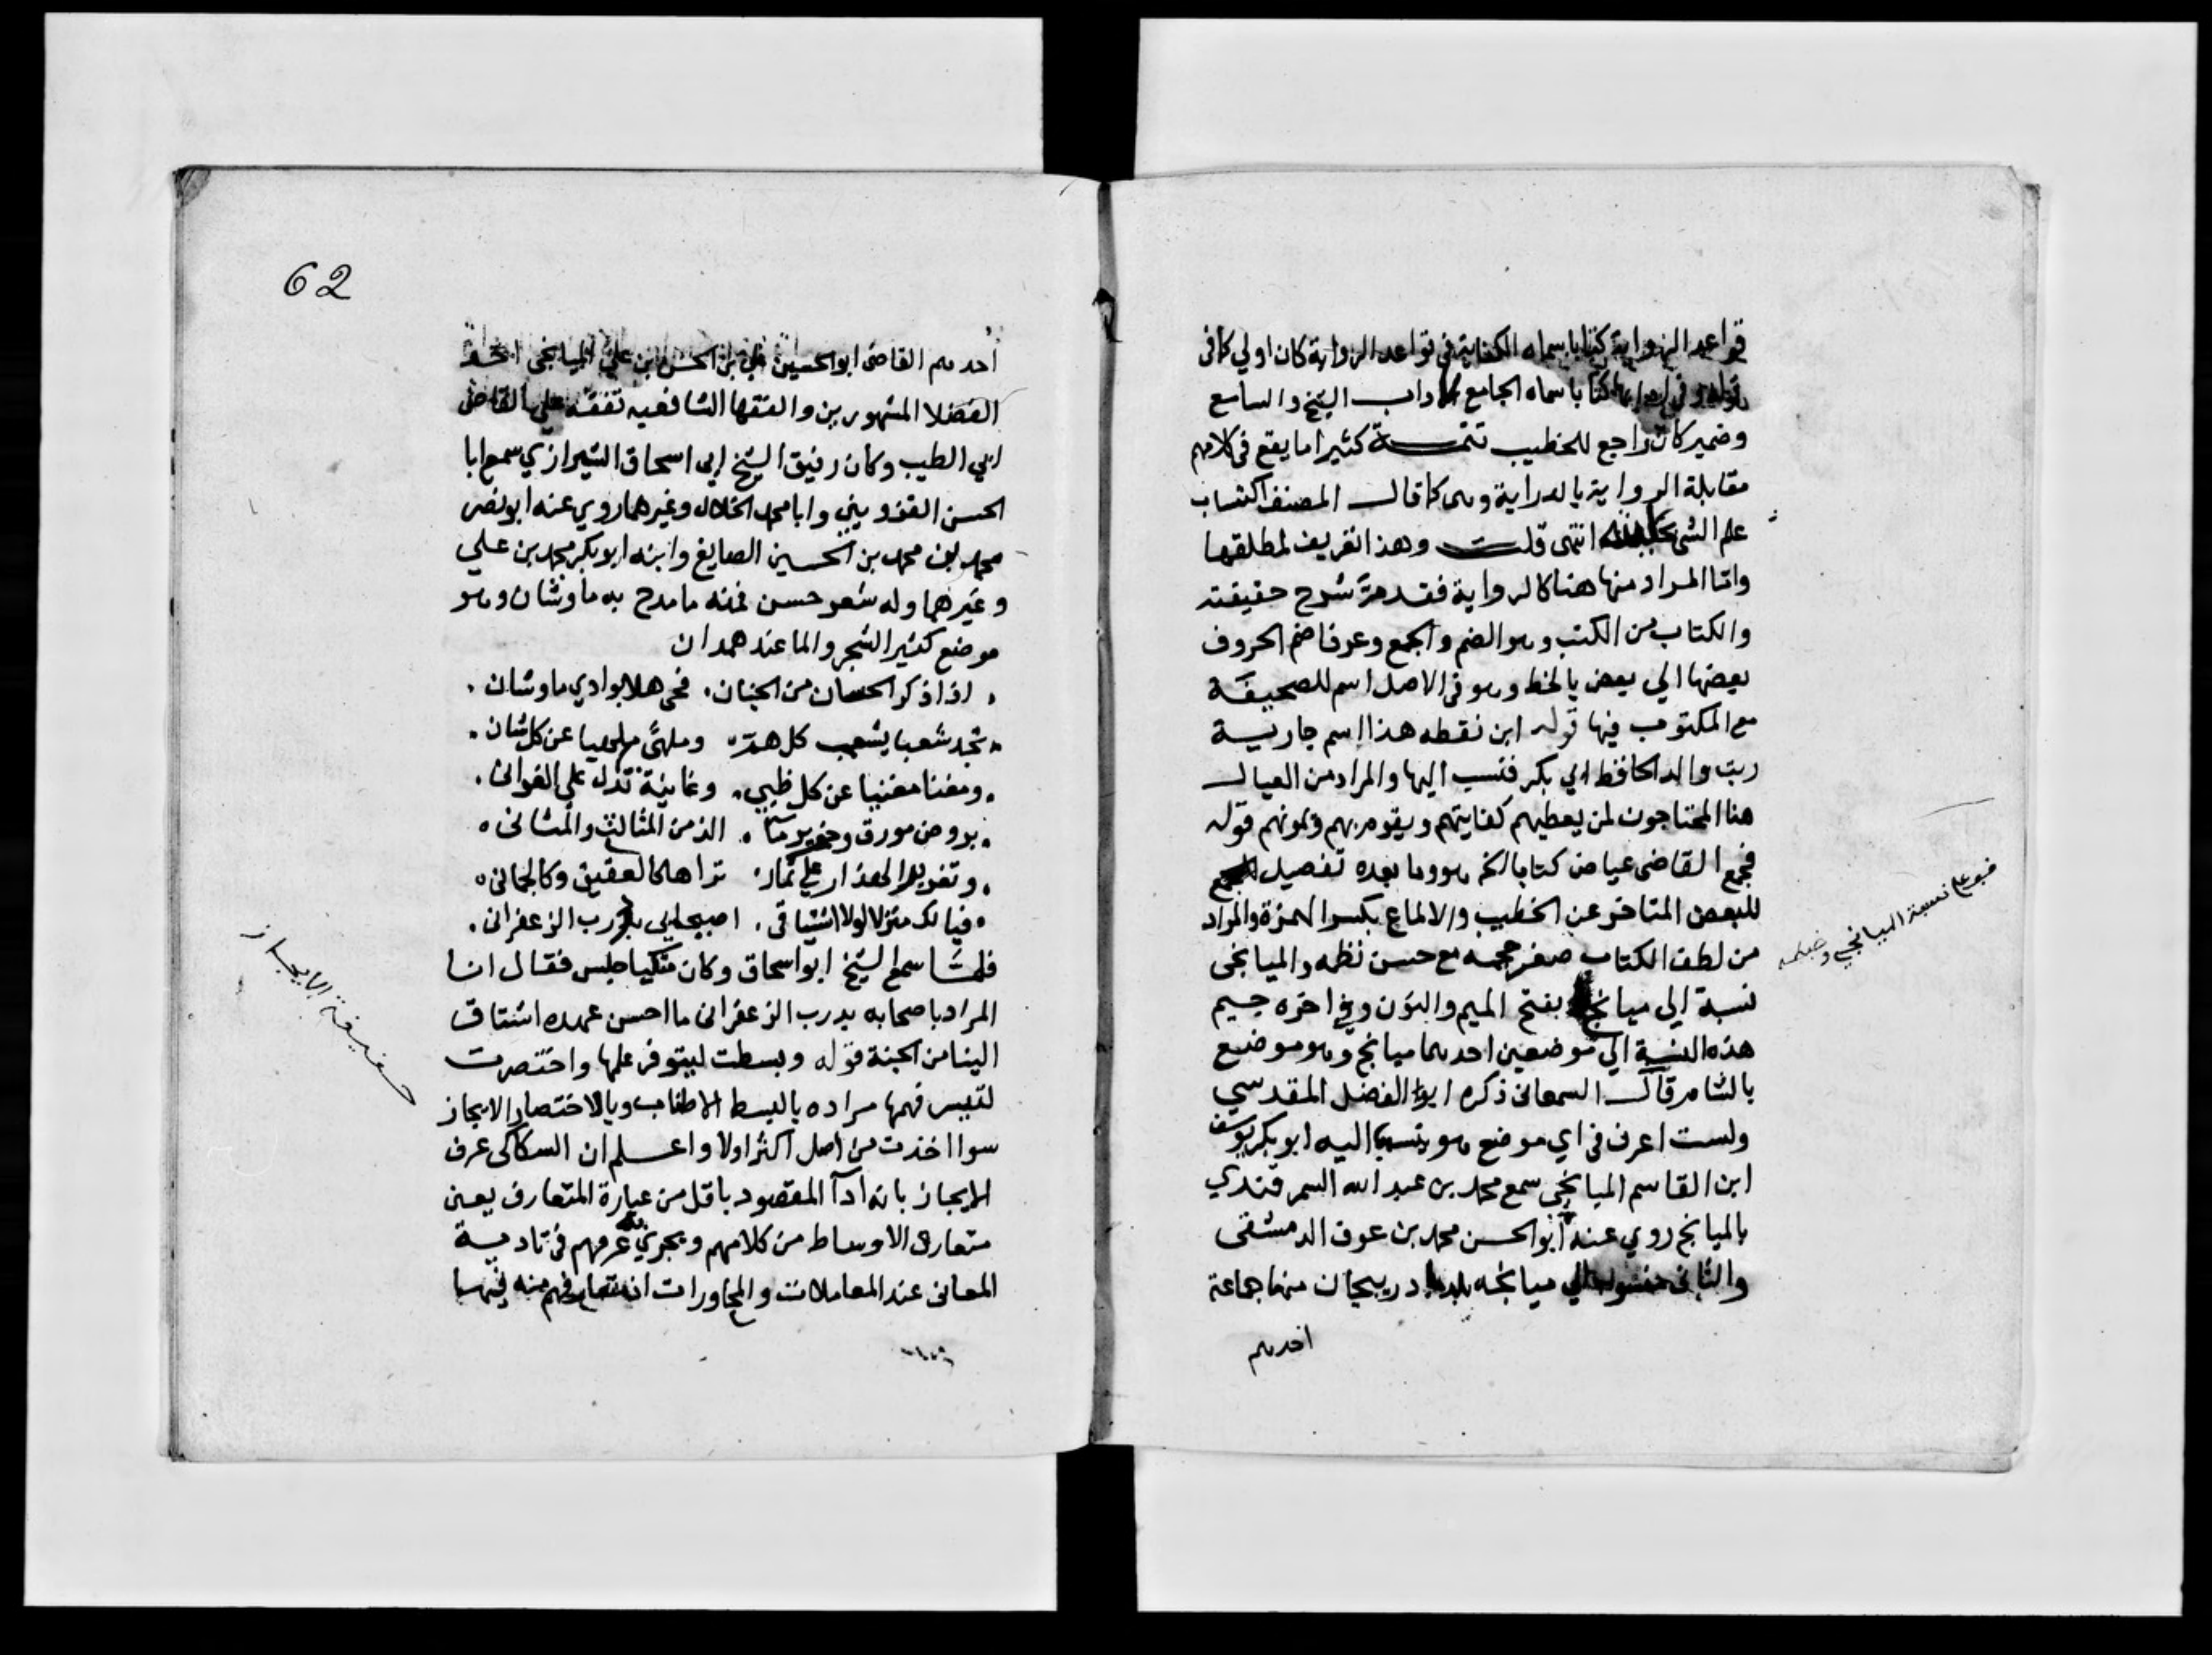 قواعد الرواية كتابا سماه الكفاية في قواعد الرواية كان اولي كما في
كتابا سماه الجامع لاداب الشيخ والسامع
وضمير كان راجع للخطيب تتمـــة كثيرا ما يقع في كلامهم
مقابلة الرواية بالدراية وهي كما قال المصنف اكتساب
علم الشي انتهى قلت وهذا تعريف لمطلقها
واما المراد منها هنا كالرواية فقد مر شرح حقيقته
والكتاب من الكتب وهو الضم والجمع وعرفا ضم الحروف
بعضها الي بعض بالخط وهو في الاصل اسم للصحيفة
مع المكتوب فيها قوله ابن نقطه هذا اسم جارية
ربت والد الحافظ ابي بكر فنسب اليها والمراد من العيال
هنا المحتاجون لمن يعطيهم كفايتهم ويقوم بهم وتمونهم قوله
فجمع القاضي عياض كتابا الخ هو وما بعده تفصيل
للبعض المتاخر عن الخطيب والالماع بكسر الهمزة والمراد
من لطف الكتاب صغر حجمه مع حسن نظمه والميانجي
نسبة الي ميانج بفتح الميم والنون وفي اخره جيم
هذه النسبة الي موضعين احدهما ميانج وهو موضع
بالشام قال السمعاني ذكره ابو الفضل المقدسي
ولست اعرف في اي موضع هو ينسب اليه ابو بكر يوسف
ابن القاسم الميانجي سمع محمد بن عبد الله السمرقندي
بالميانج روي عنه ابو الحسن محمد بن عوف الدمشقي
والثاني منسوب الي ميانجه بلد اذربيجان منها جماعة
احدهم
منبع علي نسبة الميانجي وضبطه
62
احدهم القاضي ابو الحسين علي بن الحسن بن علي الميانجي احد
الفضلا المشهورين والفقها الشافعيه تفقه علي القاضي
ابي الطيب وكان رفيق الشيخ ابي اسحاق الشيرازي سمع ابا
الحسن القزويني وابا محمد الخلال وغيرهما روي عنه ابو نصر
محمد بن محمد بن الحسين الصايغ وابنه ابو بكر محمد بن علي
وغيرهما وله شعر حسن فمنه ما مدح به ماوشان وهو
موضع كثير الشجر والما عند همدان
اذا ذكر الحسان من الجنان، فحي هلا بوادي ماوشان،
تجد شعبا يشعب كل هم، وملهى ملهيا عن كل شان،
ومغنا مغنيا عن كل ظبي، وغانية تدل علي الغواني،
بروض مورق وخرير ما، الذ من المثالث والمثاني،
وتغريد الهزار علي ثمار، تراها كالعقيق وكالجمان،
فيا لك منزلا لولا اشتياقي، اصيحابي بدرب الزعفراني،
فلما سمع الشيخ ابو اسحاق وكان متكيا جلس فقال انا
المراد باصحابه بدرب الزعفراني ما احسن عهده اشتاق
الينا من الجنة قوله وبسطت ليتوفر علمها واختصرت
لتيسر فهمها مراده بالبسط الاطناب وبالاختصار الايجاز
سوا اخذت من اصل اكثر اولا واعـــلم ان السكاكي عرف
الايجاز بانه ادآ المقصود باقل من عبارة المتعارف يعني
متعارف الاوساط من كلامهم ومجري عرفهم في تادية
المعاني عند المعاملات والمحاورات
حقيقة الايجاز